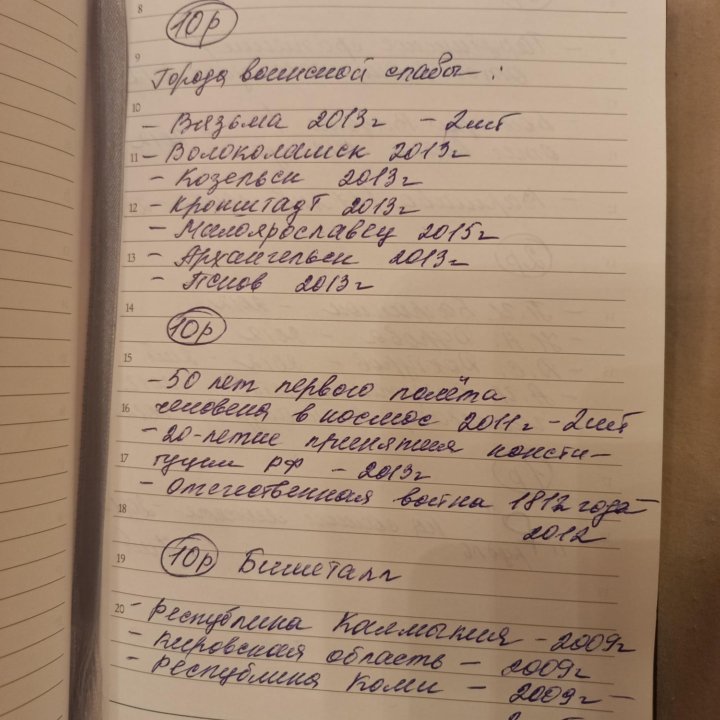 8
10р
9
Города воинской славы:
10
- Вязьма 2013г - 2шт
11 - Волоколамск 2013г
- Козельск 2013г
12 - Кронштадт 2013г
- Малоярославец 2015г
13 - Архангельск 2013г
- Псков 2013г
14
10р
15
- 50 лет первого полёта
16 человека в космос 2011г - 2шт
- 20-летие принятия консти-
17 туции РФ - 2013г
- Отечественная война 1812 года -
18 2012
10р Биметалл
19
20 - Республика Калмыкия - 2009г
- Кировская область - 2009г
- Республика Коми - 2009г -